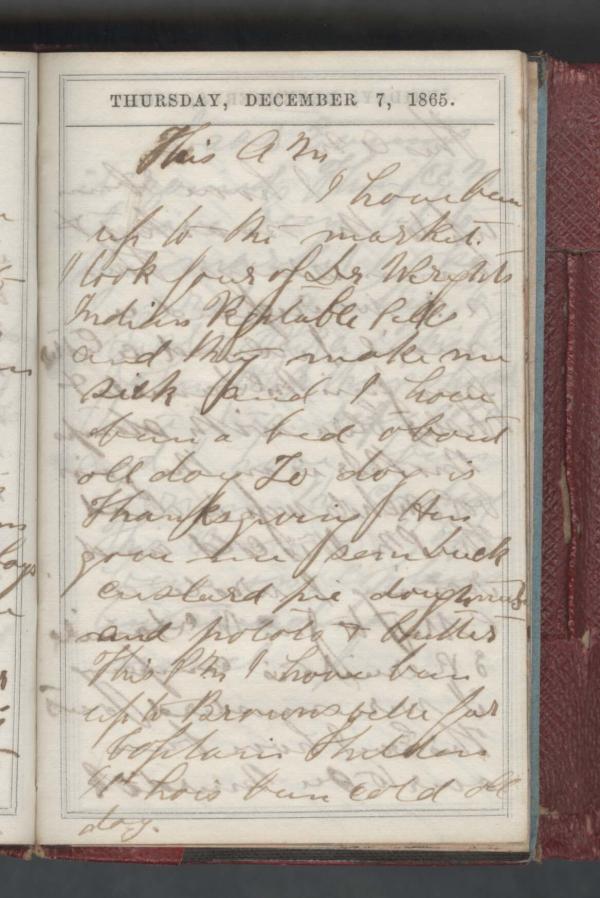 THURSDAY, DECEMBER 7, 1865.
This A M
I have ben
up to the market.
I took four of Dr Wrights
Indian Vegtable Pills
and they make me
sick and I have
ben a bed about
all day To day is
Thanksgivin
gave me
custard pie doughnuts
and potots + butter
This P M I have ben
up to Brownsvelle for
Captain
It hais ben cold all
day.